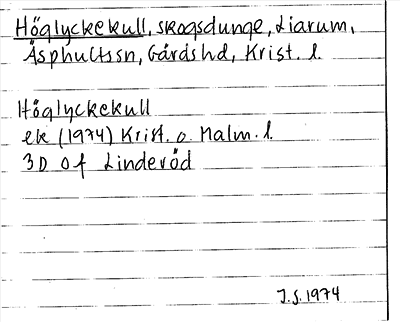 Höglyckekull, skogsdunge, Liarum,
Äsphultssn, Gärdshd, Krist. l.
Höglyckekull
ek (1974) Krist. o. Malm. l.
3D 0f Linderöd
J.S. 1974